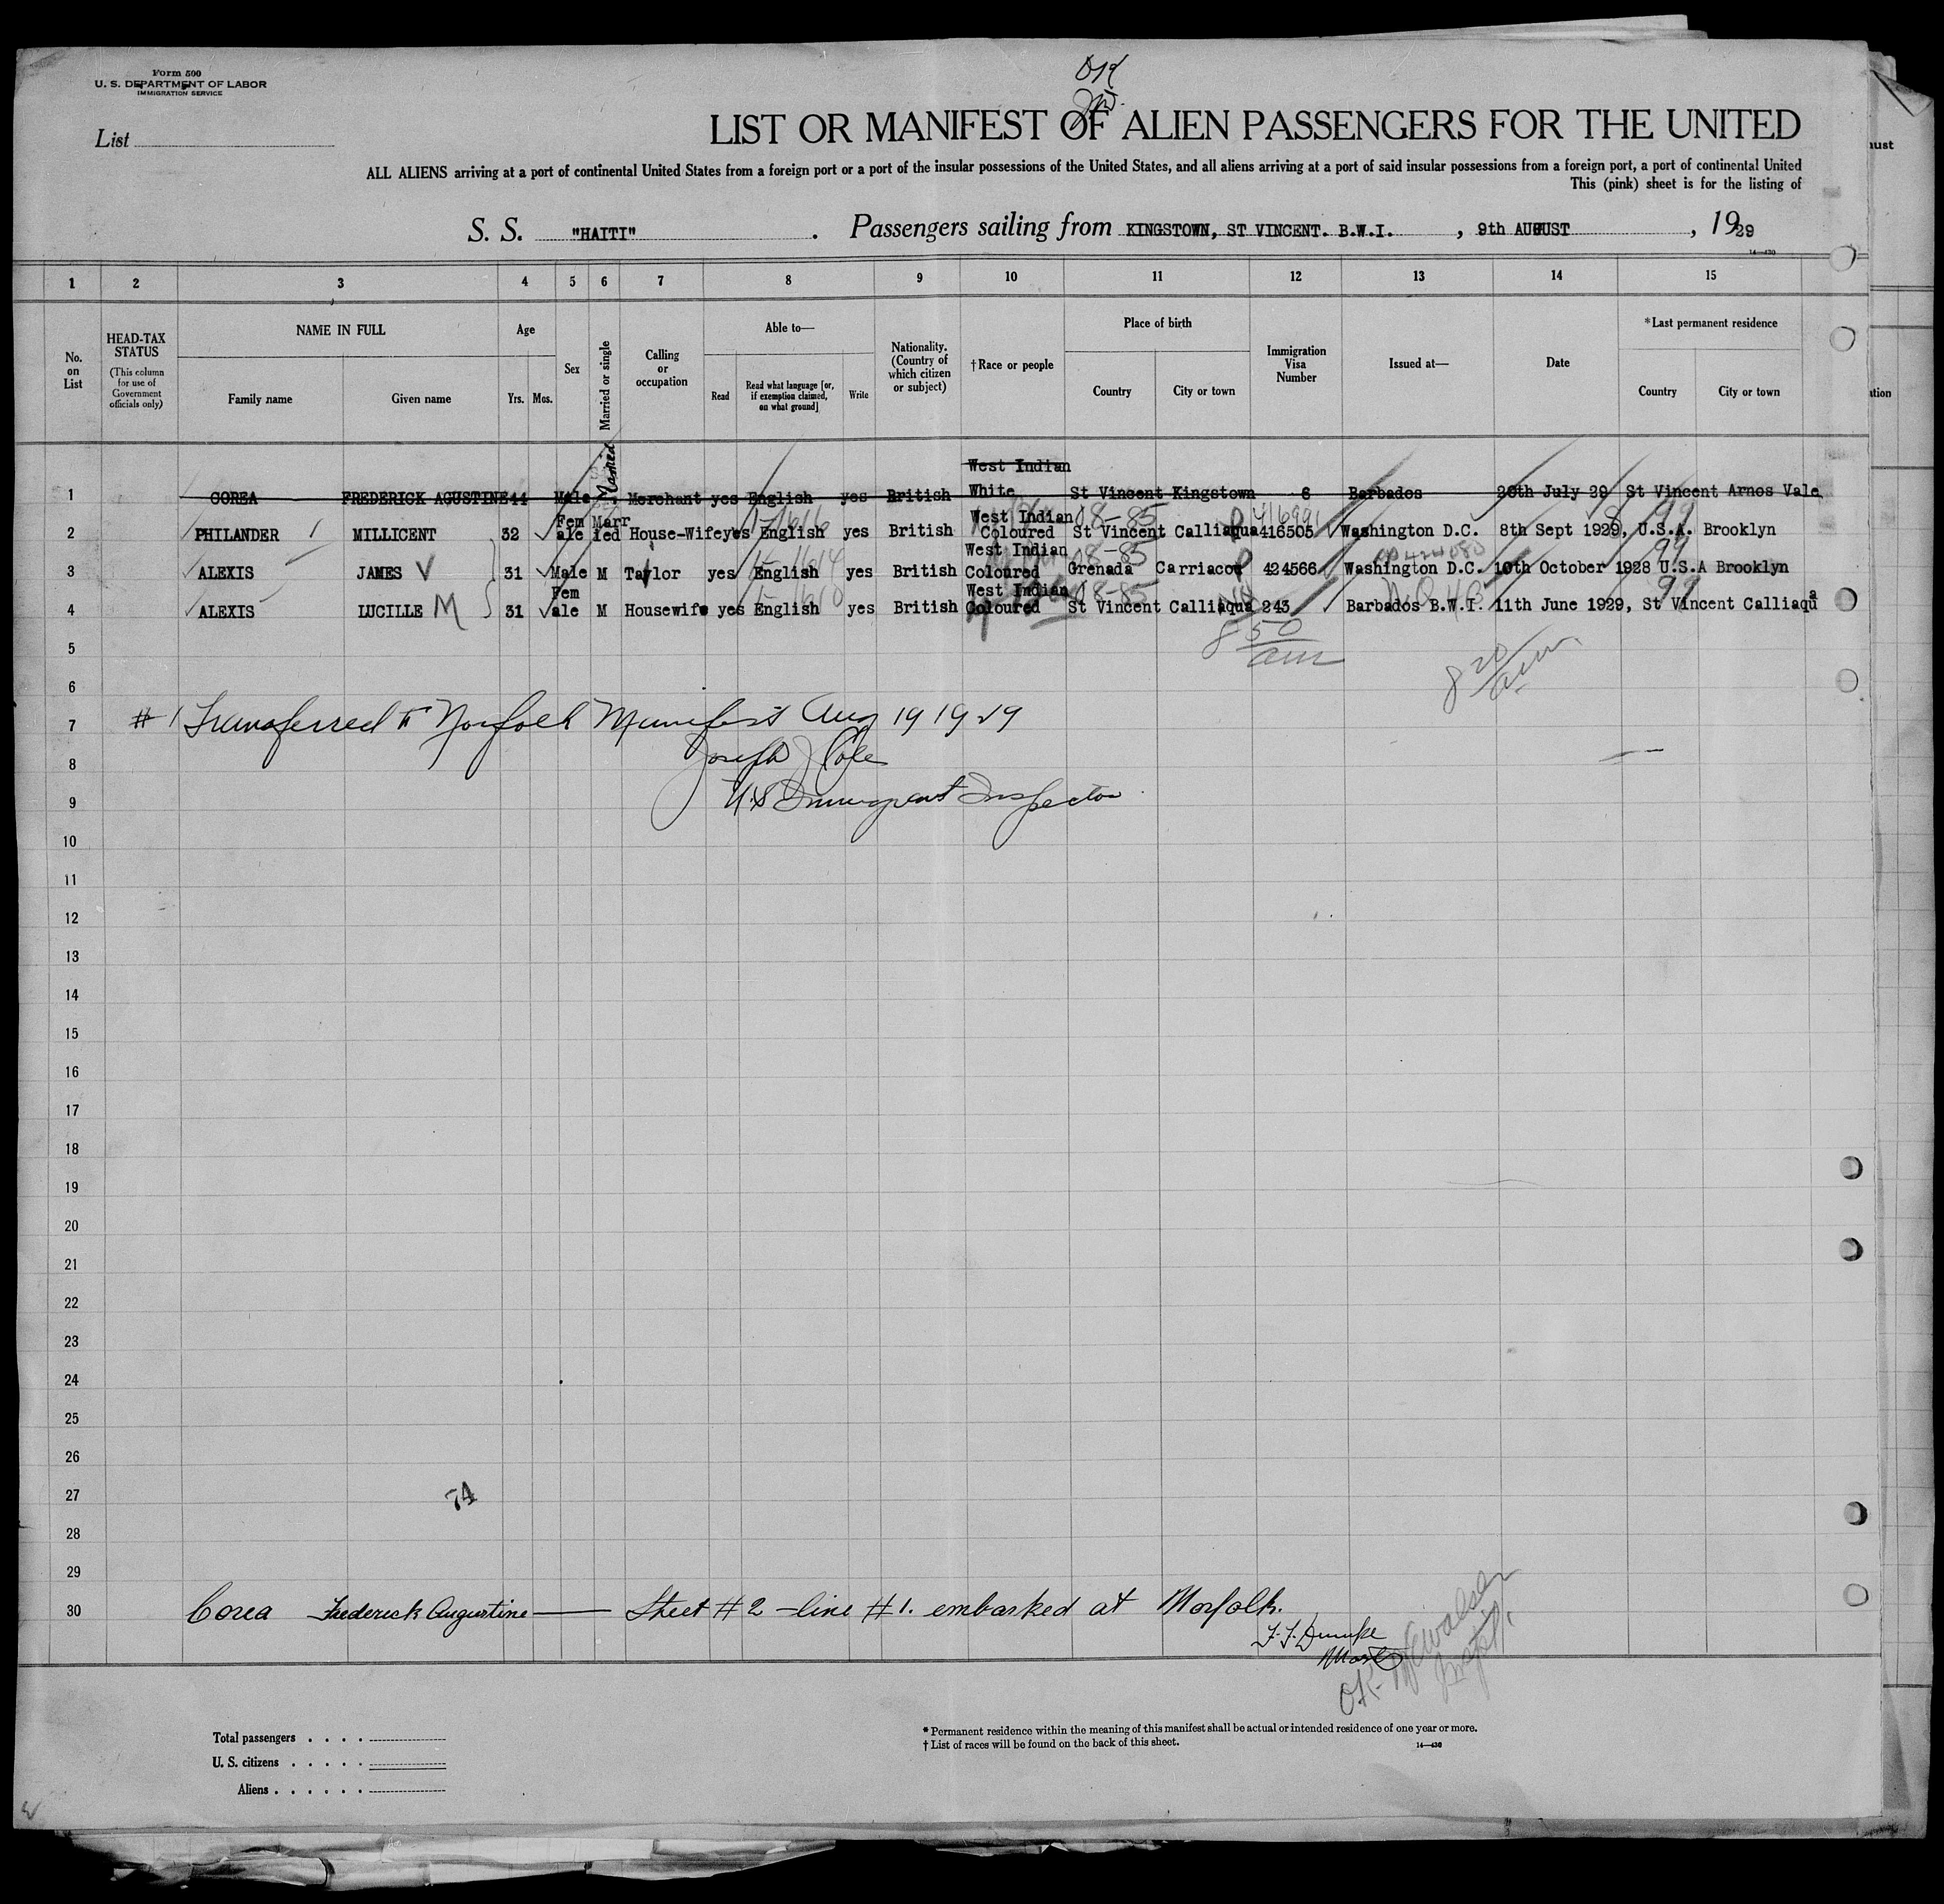 Form 500
U. S. DEPARTMENT OF LABOR
IMMIGRATION SERVICE
OK
List
LIST OR MANIFEST OF ALIEN PASSENGERS FOR THE UNITED
ALL ALIENS arriving at a port of continental United States from a foreign port or a port of the insular possessions of the United States, and all aliens arriving at a port of said insular possessions from a foreign port, a port of continental United
This (pink) sheet is for the listing of
S. S. "HAITI". Passengers sailing from KINGSTOWN, ST VINCENT. B.W.I. , 9th AUGUST , 1929
14—430
1 2 3 4 5 6 7 8 9 10 11 12 13 14 15
No. on List
HEAD-TAX STATUS
(This column for use of Government officials only)
NAME IN FULL
Family name Given name
Age
Yrs. Mos.
Sex
Married or single
Calling or occupation
Able to—
Read Read what language [or, if exemption claimed, on what ground] Write
Nationality. (Country of which citizen or subject)
†Race or people
Place of birth
Country City or town
Immigration Visa Number
Issued at—
Date
*Last permanent residence
Country City or town
1 COREA FREDERICK AGUSTINE 44 Male Married Merchant yes English yes British West Indian White St Vincent Kingstown 6 Barbados 26th July 29 St Vincent Arnos Vale
2 PHILANDER MILLICENT 32 Fem ale Marr ied House-Wife yes English yes British West Indian Coloured St Vincent Calliaqua 416505 Washington D.C. 8th Sept 1929, U.S.A. Brooklyn
08-85 416991 99
3 ALEXIS JAMES V 31 Male M Taylor yes English yes British West Indian Coloured Grenada Carriacou 424566 Washington D.C. 10th October 1928 U.S.A Brooklyn
08-85 99
4 ALEXIS LUCILLE M 31 Fem ale M Housewife yes English yes British West Indian Coloured St Vincent Calliaqua 243 Barbados B.W.I. 11th June 1929, St Vincent Calliaqua
08-85 99
5
8 50/am
8 20/am
6
7 #1 Transferred to Norfolk Manifest Aug 19 1929
8 Joseph J Cole
9 U.S Immigrant Inspector
10
11
12
13
14
15
16
17
18
19
20
21
22
23
24
25
26
27
74
28
29
30 Corea Frederick Augustine — Sheet #2 - line #1. embarked at Norfolk.
OK
Total passengers
U. S. citizens
Aliens
* Permanent residence within the meaning of this manifest shall be actual or intended residence of one year or more.
† List of races will be found on the back of this sheet.
14—430